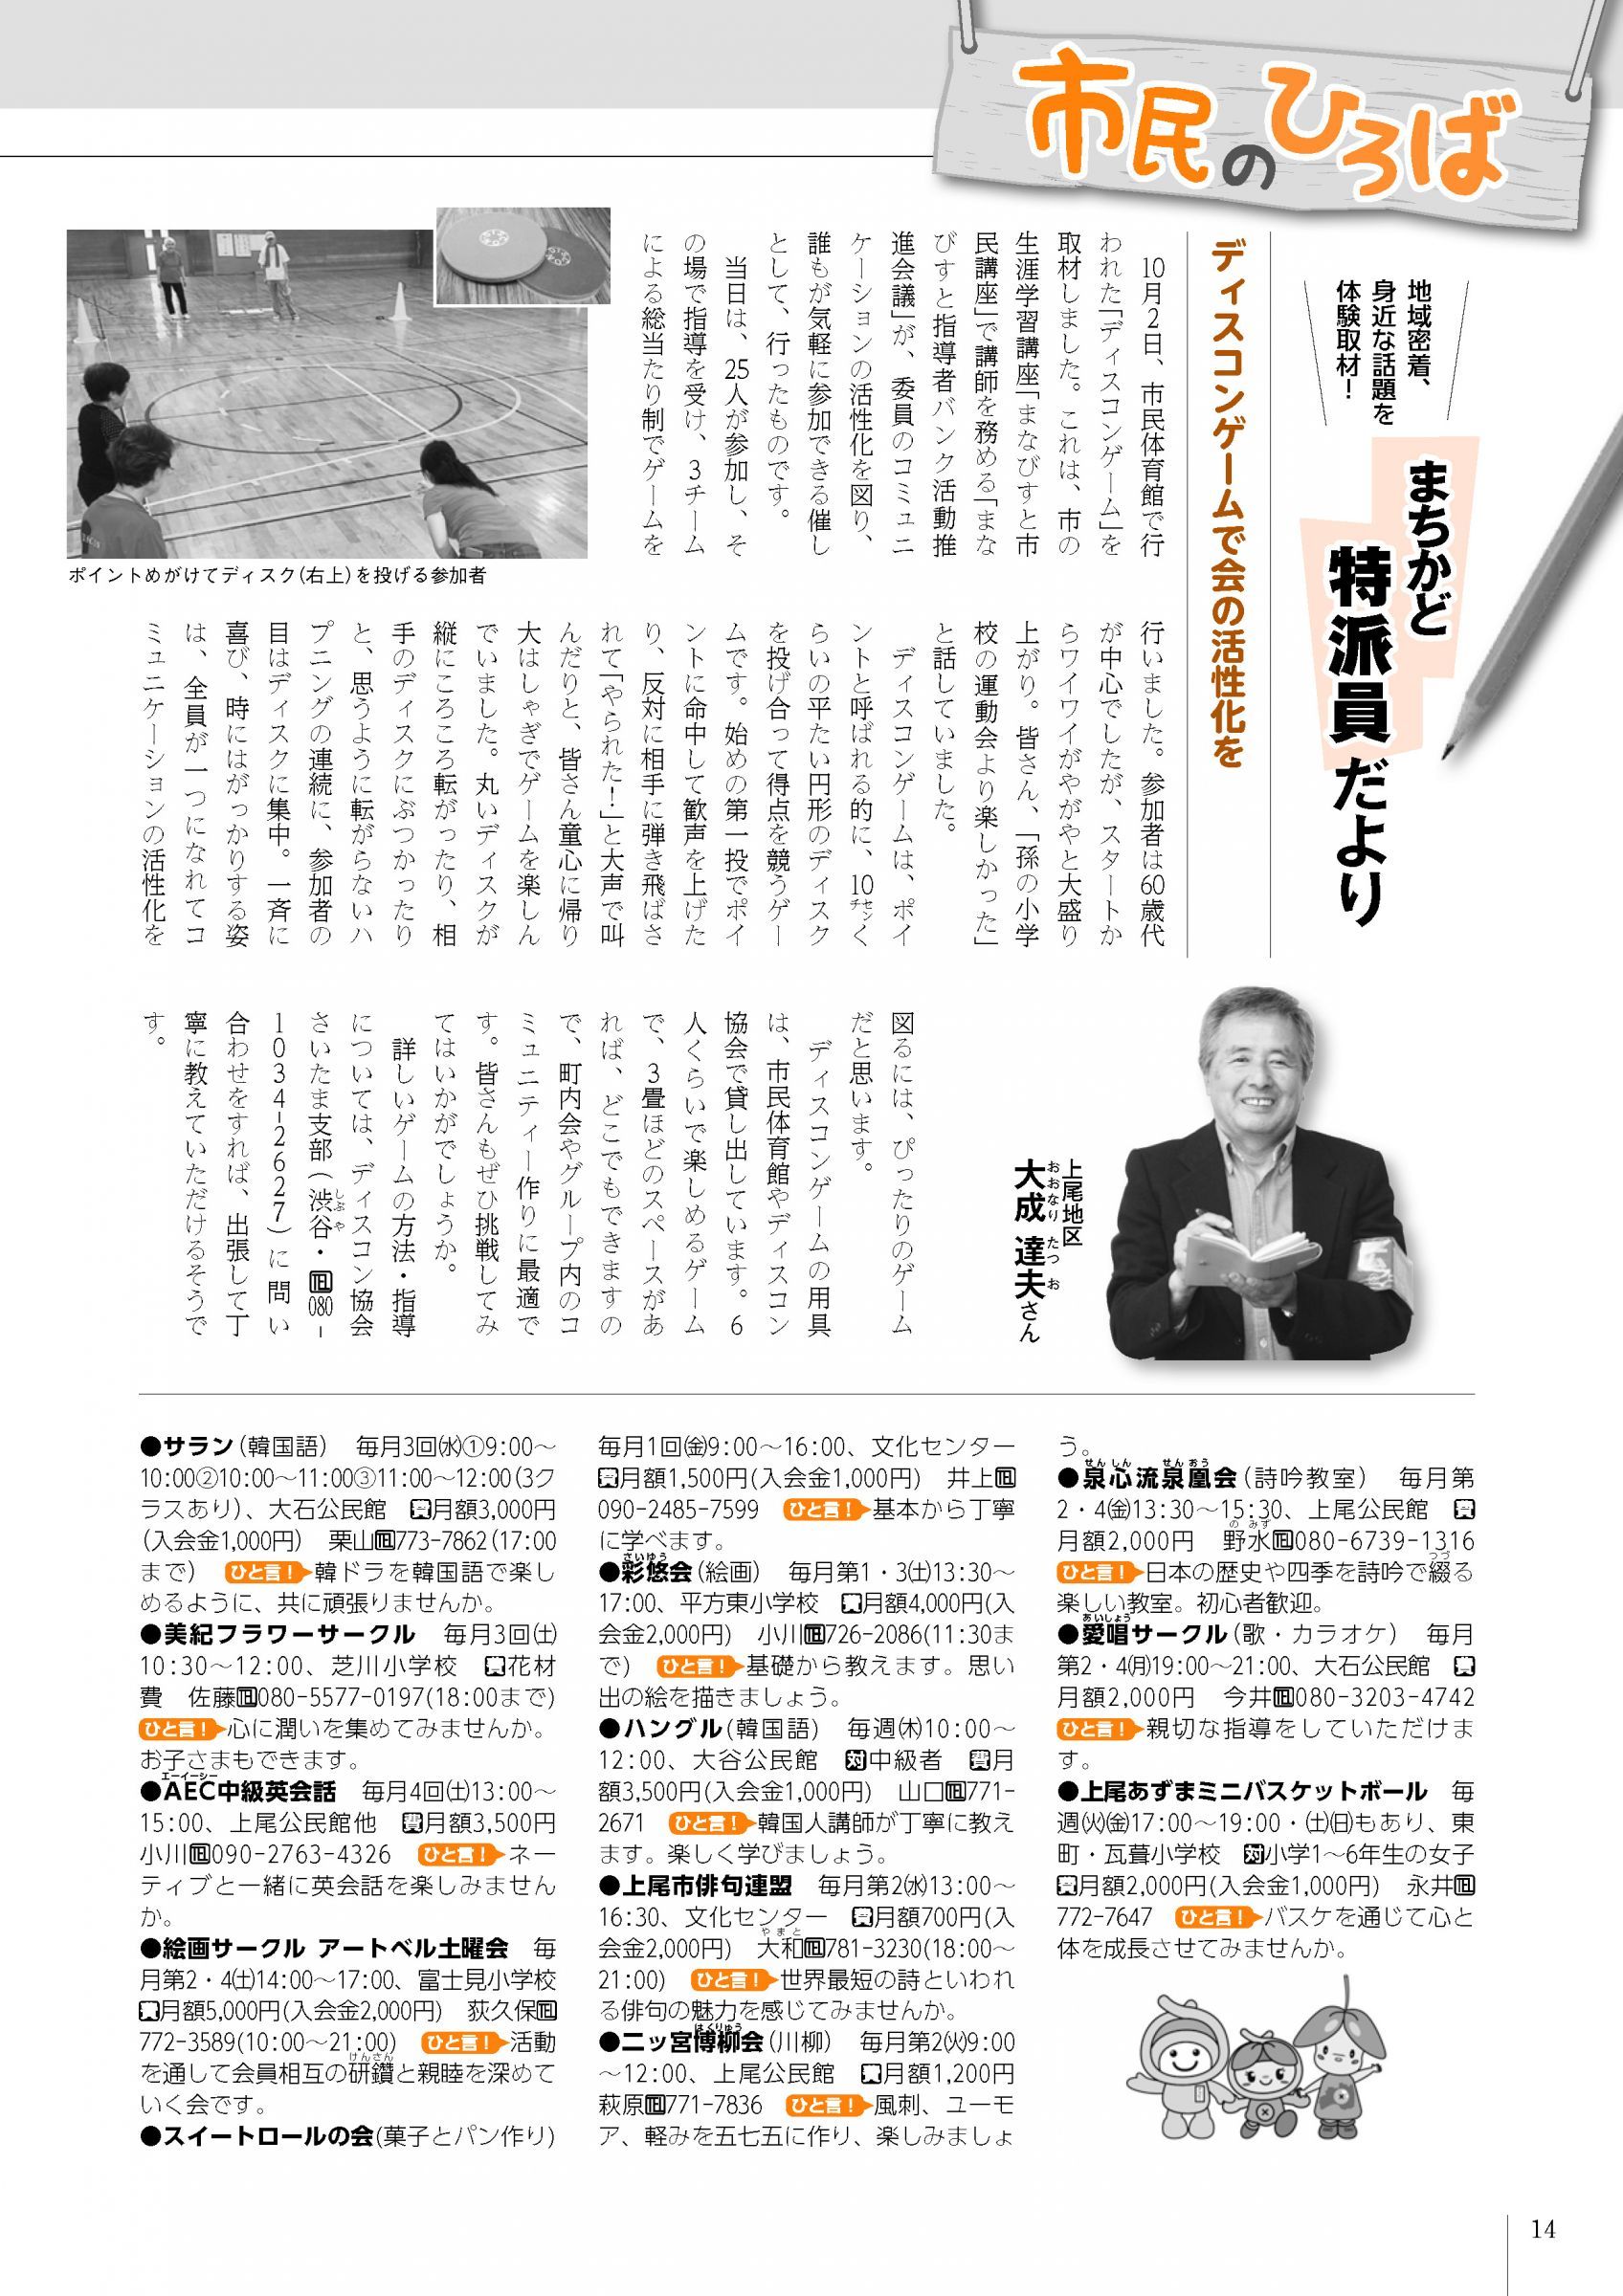 市民のひろば
地域密着、
身近な話題を
体験取材！
まちかど
特派員だより
ディスコンゲームで会の活性化を
10月2日、市民体育館で行
われた「ディスコンゲーム」を
取材しました。これは、市の
生涯学習講座「まなびすと市
民講座」で講師を務める「まな
びすと指導者バンク活動推
進会議」が、委員のコミュニ
ケーションの活性化を図り、
誰もが気軽に参加できる催し
として、行ったものです。
当日は、25人が参加し、そ
の場で指導を受け、3チーム
による総当たり制でゲームを
ポイントめがけてディスク(右上)を投げる参加者
行いました。参加者は60歳代
が中心でしたが、スタートか
らワイワイがやがやと大盛り
上がり。皆さん、「孫の小学
校の運動会より楽しかった」
と話していました。
ディスコンゲームは、ポイ
ントと呼ばれる的に、10センチく
らいの平たい円形のディスク
を投げ合って得点を競うゲー
ムです。始めの第一投でポイ
ントに命中して歓声を上げた
り、反対に相手に弾き飛ばさ
れて「やられた！」と大声で叫
んだりと、皆さん童心に帰り
大はしゃぎでゲームを楽しん
でいました。丸いディスクが
縦にころころ転がったり、相
手のディスクにぶつかったり
と、思うように転がらないハ
プニングの連続に、参加者の
目はディスクに集中。一斉に
喜び、時にはがっかりする姿
は、全員が一つになれてコ
ミュニケーションの活性化を
上尾地区
大成 達夫さん
おおなり たつ お
図るには、ぴったりのゲーム
だと思います。
ディスコンゲームの用具
は、市民体育館やディスコン
協会で貸し出しています。6
人くらいで楽しめるゲーム
で、3畳ほどのスペースがあ
れば、どこでもできますの
で、町内会やグループ内のコ
ミュニティー作りに最適で
す。皆さんもぜひ挑戦してみ
てはいかがでしょうか。
詳しいゲームの方法・指導
については、ディスコン協会
さいたま支部(渋谷・TEL080-
しぶや
1034-2627)に問い
合わせをすれば、出張して丁
寧に教えていただけるそうで
す。
●サラン(韓国語)　毎月3回(水)①9:00～
10:00②10:00～11:00③11:00～12:00(3ク
ラスあり)、大石公民館　費月額3,000円
(入会金1,000円)　栗山TEL773-7862(17:00
まで)　ひと言！韓ドラを韓国語で楽し
めるように、共に頑張りませんか。
●美紀フラワーサークル　毎月3回(土)
10:30～12:00、芝川小学校　費花材
費　佐藤TEL080-5577-0197(18:00まで)
ひと言！心に潤いを集めてみませんか。
お子さまもできます。
エーイーシー
●AEC中級英会話　毎月4回(土)13:00～
15:00、上尾公民館他　費月額3,500円
小川TEL090-2763-4326　ひと言！ネー
ティブと一緒に英会話を楽しみません
か。
●絵画サークル アートベル土曜会　毎
月第2・4(土)14:00～17:00、富士見小学校
費月額5,000円(入会金2,000円)　荻久保TEL
772-3589(10:00～21:00)　ひと言！活動
けんさん
を通して会員相互の研鑽と親睦を深めて
いく会です。
●スイートロールの会(菓子とパン作り)
毎月1回(金)9:00～16:00、文化センター
費月額1,500円(入会金1,000円)　井上TEL
090-2485-7599　ひと言！基本から丁寧
に学べます。
さいゆう
●彩悠会(絵画)　毎月第1・3(土)13:30～
17:00、平方東小学校　費月額4,000円(入
会金2,000円)　小川TEL726-2086(11:30ま
で)　ひと言！基礎から教えます。思い
出の絵を描きましょう。
●ハングル(韓国語)　毎週(木)10:00～
12:00、大谷公民館　対中級者　費月
額3,500円(入会金1,000円)　山口TEL771-
2671　ひと言！韓国人講師が丁寧に教え
ます。楽しく学びましょう。
●上尾市俳句連盟　毎月第2(水)13:00～
16:30、文化センター　費月額700円(入
やまと
会金2,000円)　大和TEL781-3230(18:00～
21:00)　ひと言！世界最短の詩といわれ
る俳句の魅力を感じてみませんか。
はくりゅう
●二ッ宮博柳会(川柳)　毎月第2(火)9:00
～12:00、上尾公民館　費月額1,200円
萩原TEL771-7836　ひと言！風刺、ユーモ
ア、軽みを五七五に作り、楽しみましょ
う。
せんしん せんおう
●泉心流泉凰会(詩吟教室)　毎月第
2・4(金)13:30～15:30、上尾公民館　費
のみず
月額2,000円　野水TEL080-6739-1316
つづ
ひと言！日本の歴史や四季を詩吟で綴る
楽しい教室。初心者歓迎。
あいしょう
●愛唱サークル(歌・カラオケ)　毎月
第2・4(月)19:00～21:00、大石公民館　費
月額2,000円　今井TEL080-3203-4742
ひと言！親切な指導をしていただけま
す。
●上尾あずまミニバスケットボール　毎
週(火)(金)17:00～19:00・(土)(日)もあり、東
町・瓦葺小学校　対小学1～6年生の女子
費月額2,000円(入会金1,000円)　永井TEL
772-7647　ひと言！バスケを通じて心と
体を成長させてみませんか。
14